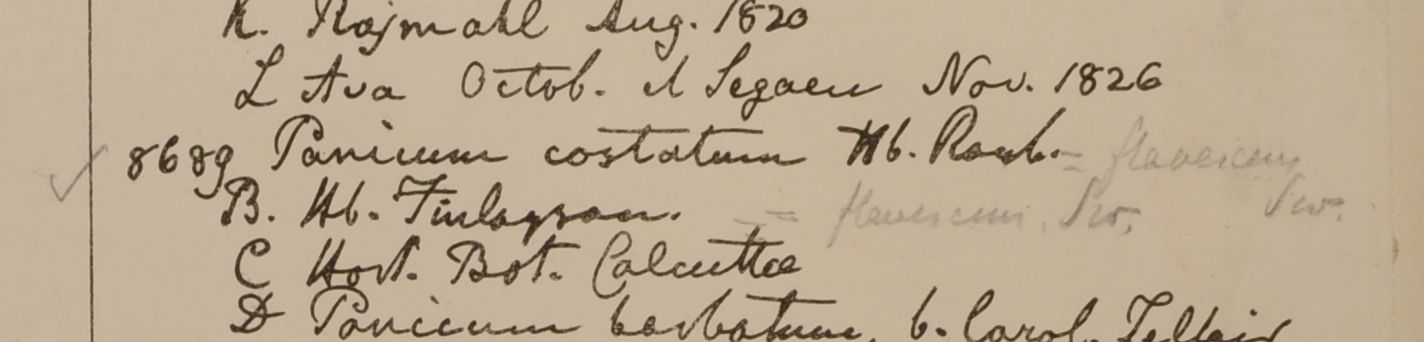 K. Rajmahl Aug. 1820
L Ava Octob. et Segaen Nov. 1826
8689 Panicum costatum Hb. Roxb. = flavescens Sw.
B. Hb. Finlayson. = flavescens. Sw.
C Hort. Bot. Calcutta
D Panicum barbatum, b. Carol. Telfair